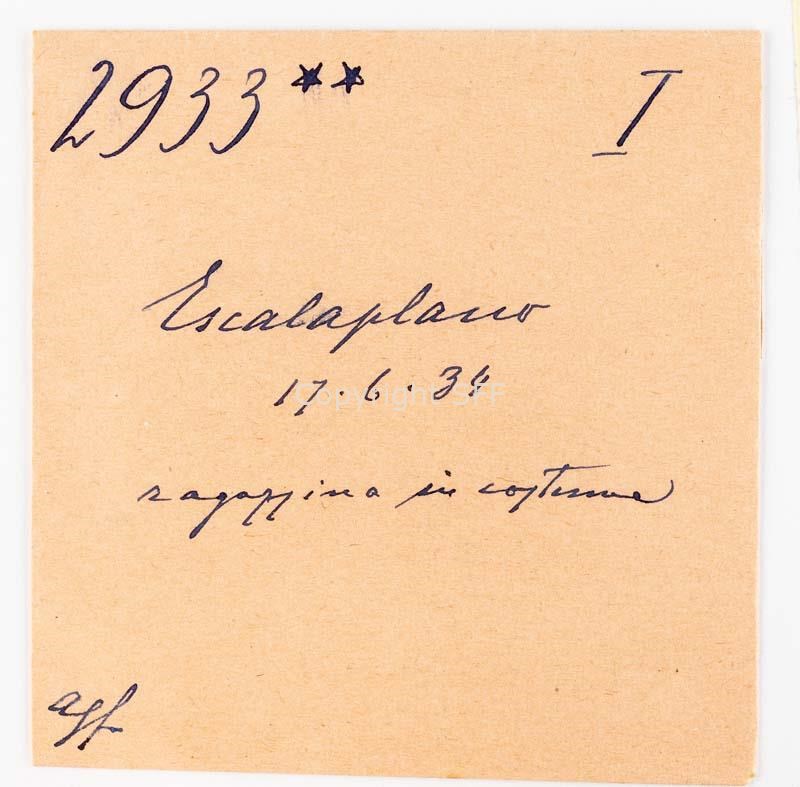 2933** I
Escalaplano
17.6.34
Copyright SFF
ragazzina in costume
agf.